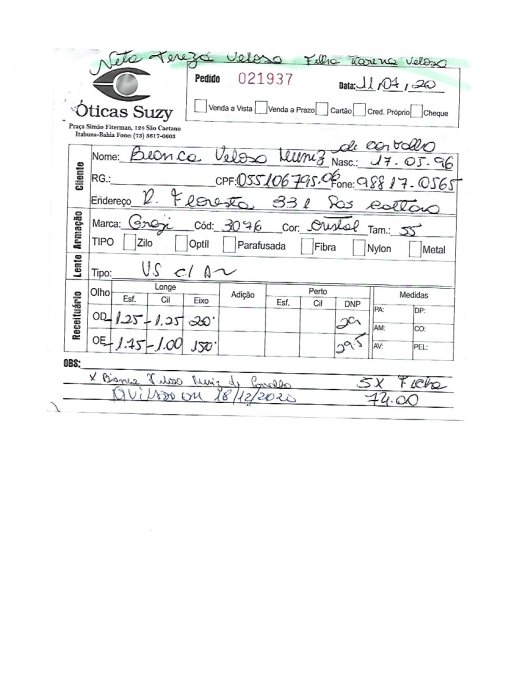 Neta Tereza Veloso Filha Lorena Veloso
Óticas Suzy
Praça Simão Fiterman, 129 São Caetano
Itabuna-Bahia Fone: (73) 3617-0603
Pedido 021937 Data: 11,07,20
Venda a Vista Venda a Prazo Cartão Cred. Próprio Cheque
de Carvalho
Nome: Bianca Veloso Muniz Nasc.: 17.05.96
RG.: CPF: 055106795.06 Fone: 98817.0565
Endereço R. Floresta 331 São Caetano
Cliente
Marca: Cód: 3076 Cor: Cristal Tam.: 55
TIPO Zilo Optil Parafusada Fibra Nylon Metal
Armação
Lente Tipo: VS c/ AR
Receituário
Olho Longe Adição Perto Medidas
Esf. Cil Eixo Esf. Cil DNP PA: DP:
OD -1.25 -1.25 20° 29 AM: CO:
OE -1.75 -1.00 150° 29.5 AV: PEL:
OBS:
x Bianca Veloso Muniz de Carvalho 5X Ficha
18/12/2020 74.00